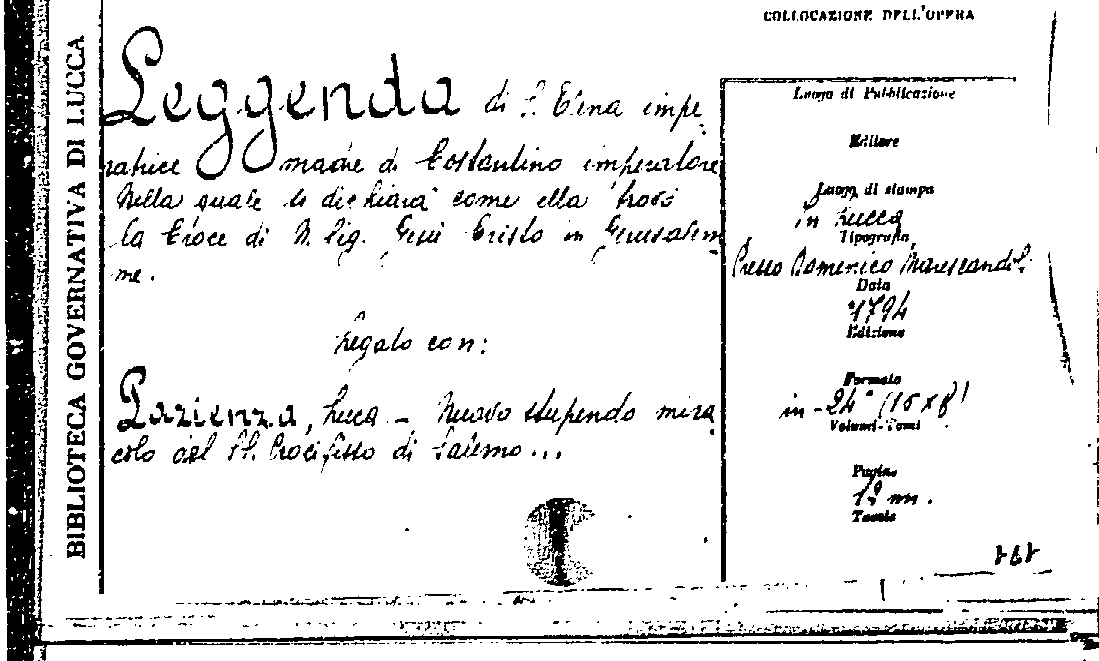 BIBLIOTECA GOVERNATIVA DI LUCCA
COLLOCAZIONE DELL'OPERA
Leggenda di S. Elena impe-
ratrice madre di Costantino imperatore
Nella quale si dichiara come ella trovò
la Croce di N. Sig. Gesù Cristo in Gerusalem
me.
Legato con:
Pazienza, Luca - Nuovo stupendo mira
colo del SS. Crocifisso di Salerno...
Luogo di Pubblicazione
Editore
Luogo di stampa
in Lucca
Tipografia
Presso Domenico Marescandoli
Data
1794
Edizione
Formato
in-24° (15x8)
Volumi-Tomi
Pagine
12 nn.
Tavole